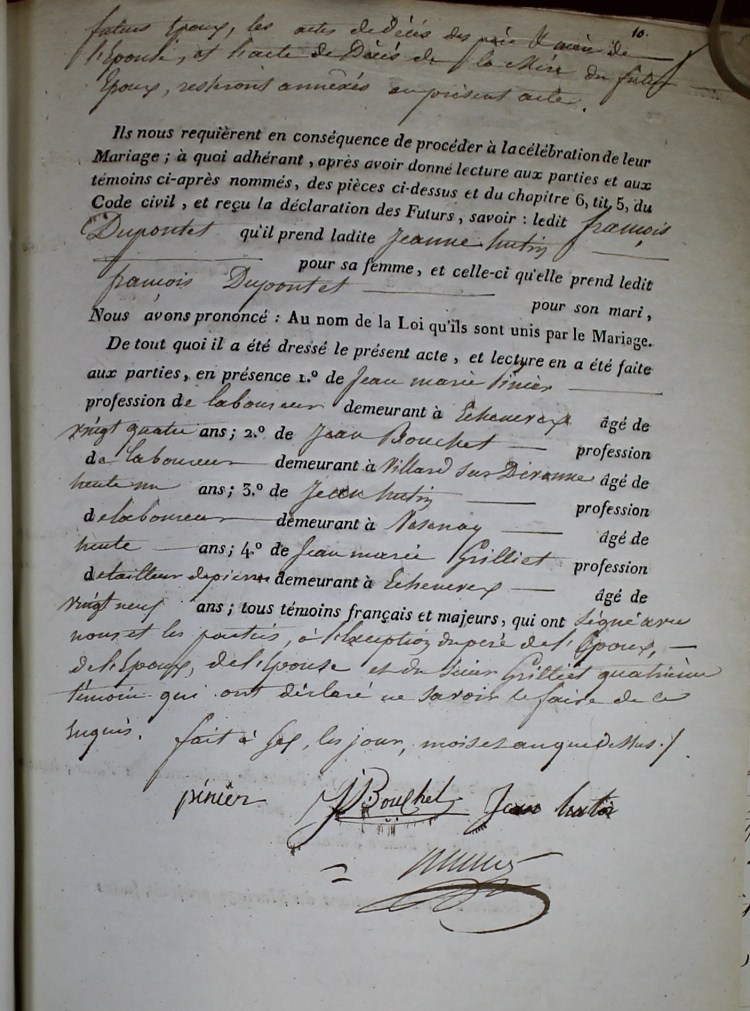 10.
futurs Epoux, les actes de Décès des père & mère de
l'Epouse, et l'acte de Décès de la Mère du futur
Epoux, resteront annéxés au présent acte.
Ils nous requièrent en conséquence de procéder à la célébration de leur
Mariage ; à quoi adhérant, après avoir donné lecture aux parties et aux
témoins ci-après nommés, des pièces ci-dessus et du chapitre 6, tit. 5, du
Code civil, et reçu la déclaration des Futurs, savoir : ledit françois
Dupontet qu'il prend ladite Jeanne hutin
pour sa femme, et celle-ci qu'elle prend ledit
francois Dupontet pour son mari,
Nous avons prononcé : Au nom de la Loi qu'ils sont unis par le Mariage.
De tout quoi il a été dressé le présent acte, et lecture en a été faite
aux parties, en présence 1.º de Jean marie Pinier
profession de laboureur demeurant à Echenevex âgé de
vingt quatre ans ; 2.º de Jean Bouchet profession
de laboureur demeurant à Villard sur Divonne âgé de
trente un ans ; 3.º de Jean hutin profession
de laboureur demeurant à Vesenay âgé de
trente ans ; 4.º de Jean marie Grilliet profession
de tailleur de pierre demeurant à Echenevex âgé de
vingt neuf ans ; tous témoins français et majeurs, qui ont signé avec
nous et les parties, à l'exception du père de l'Epoux,
de l'Epoux, de l'Epouse et du sieur Grilliet quatrième
témoin qui ont déclaré ne savoir le faire de ce
enquis. fait à Gex, les jour, mois et an que dessus ./
pinier JBouchet Jean hutin